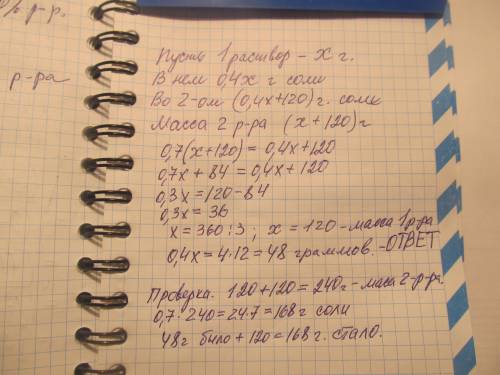 р-р.
р-ра
Пусть 1 раствор - х г.
В нем 0,4х г соли
Во 2-ом (0,4х+120) г. соли
Масса 2 р-ра (х+120) г
0,7(х+120) = 0,4х+120
0,7х + 84 = 0,4х + 120
0,3х = 120-84
0,3х = 36
х = 360:3; х = 120 - масса 1 р-ра
0,4х = 4·12 = 48 граммов. - ОТВЕТ
Проверка. 120+120 = 240 г - маса 2-р-ра
0,7·240 = 24·7 = 168 г соли
48 г было + 120 = 168 г. стало.